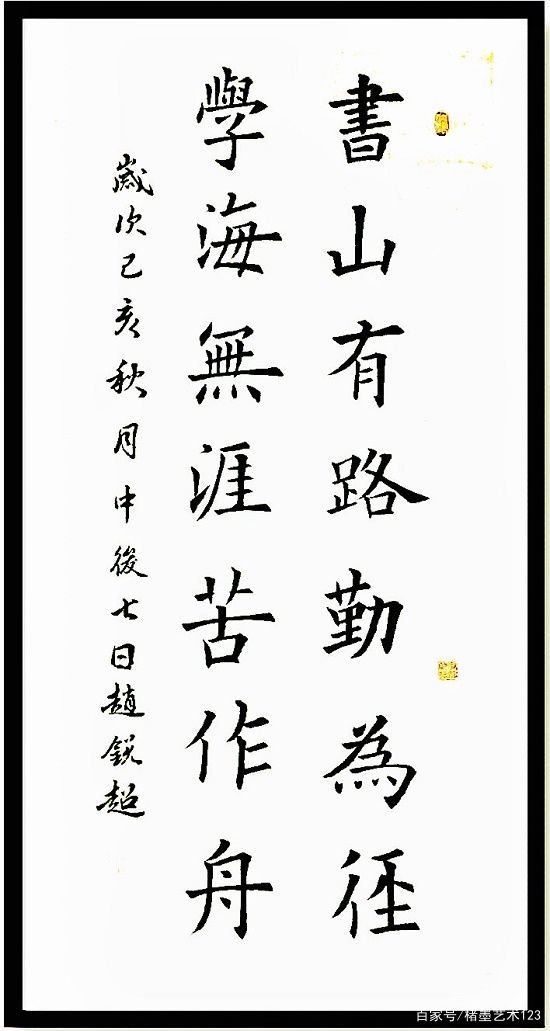 書山有路勤為徑
學海無涯苦作舟
歲次己亥秋月中後七日趙銳超
百家号/楮墨艺术123